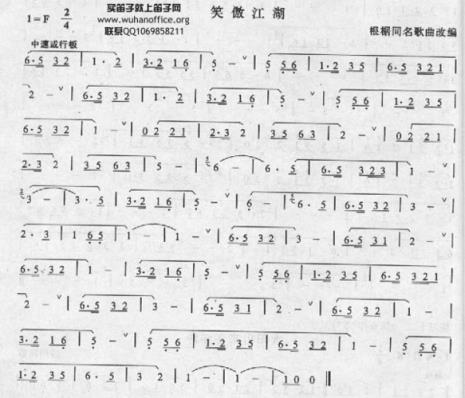 买笛子就上笛子网
www.wuhanoffice.com
联系QQ1069858211
笑傲江湖
1=F 2/4
中速或行板
根椐同名歌曲改编
6·5 3 2 | 1· 2 | 3·2 1 6 | 5 - ˅ | 5 5 6 | 1·2 3 5 | 6·5 3 2 1 |
2 - ˅ | 6·5 3 2 | 1· 2 | 3·2 1 6 | 5 - ˅ | 5 5 6 | 1·2 3 5 |
6·5 3 2 | 1 - ˅ | 0 2 2 1 | 2·3 2 | 3 5 6 3 | 2 - ˅ | 0 2 2 1 |
2·3 2 | 3 5 6 3 | 5 - | 6 - | 6· 5 | 6·5 3 2 3 | 1 - ˅ |
3 - | 3· 5 | 3·2 1 6 | 5 - ˅ | 6 - | 6· 5 | 6·5 3 2 | 3 - ˅ |
2· 3 | 1 6 5 | 1 - | 1 - ˅ | 6·5 3 2 | 3 - | 6·5 3 1 | 2 - ˅ |
6·5 3 2 | 1 - | 3·2 1 6 | 5 - ˅ | 5 5 6 | 1·2 3 5 | 6·5 3 2 1 |
2 - ˅ | 6·5 3 2 | 3 - | 6·5 3 1 | 2 - ˅ | 6·5 3 2 | 1 - |
3·2 1 6 | 5 - ˅ | 5 5 6 | 1·2 3 5 | 6·5 3 2 | 1 - ˅ | 5 5 6 |
1·2 3 5 | 6· 5 | 3 2 | 1 - | 1 - | 1 0 0 ‖